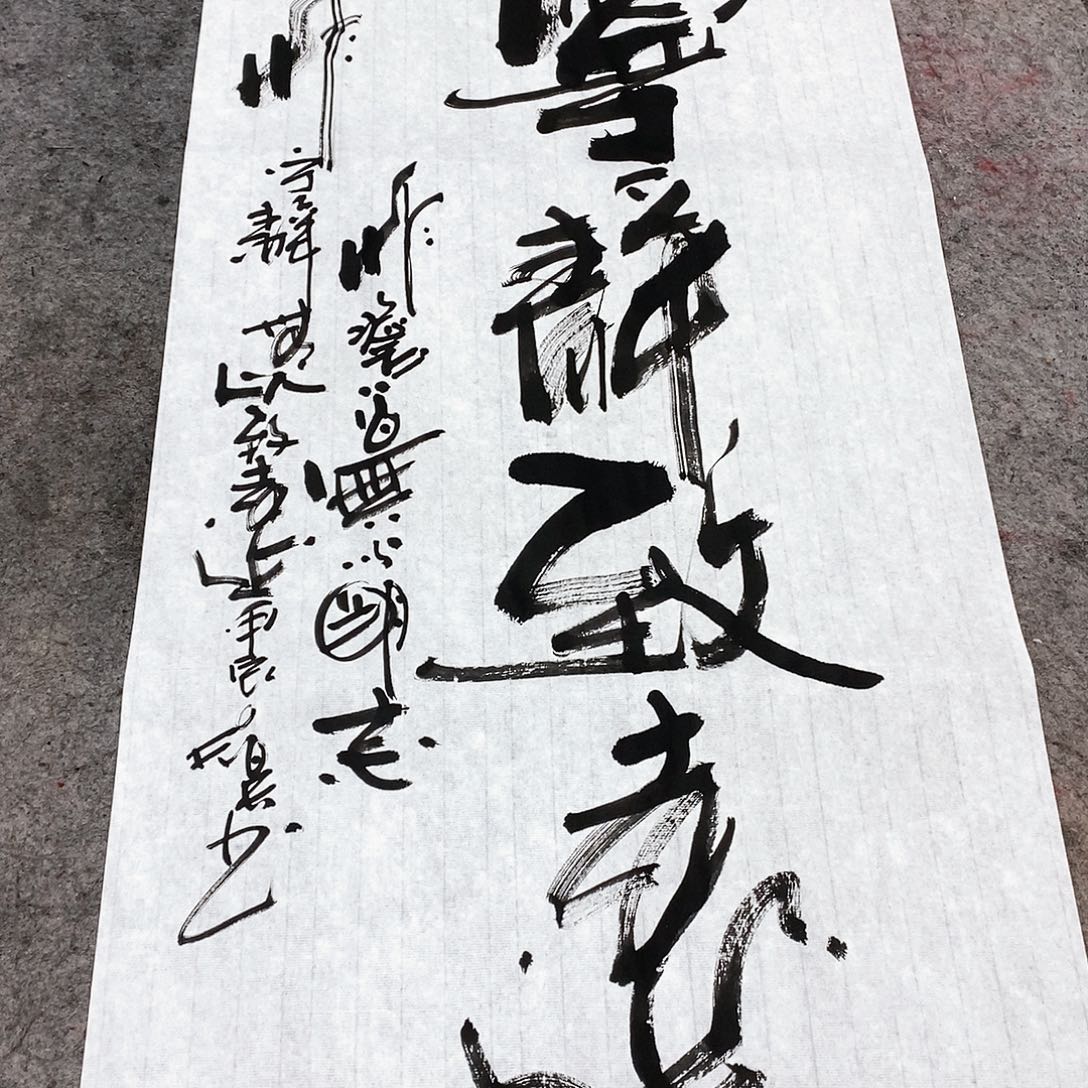 寧靜致遠
非澹泊無以明志
非寧靜無以致遠書